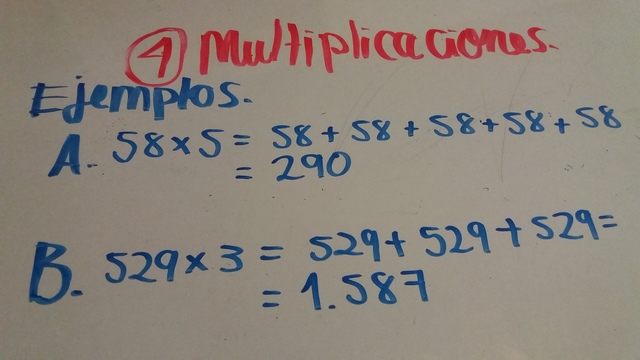 1 Multiplicaciones.
Ejemplos.
A. 58 x 5 = 58 + 58 + 58 + 58 + 58
= 290
B. 529 x 3 = 529 + 529 + 529 =
= 1.587